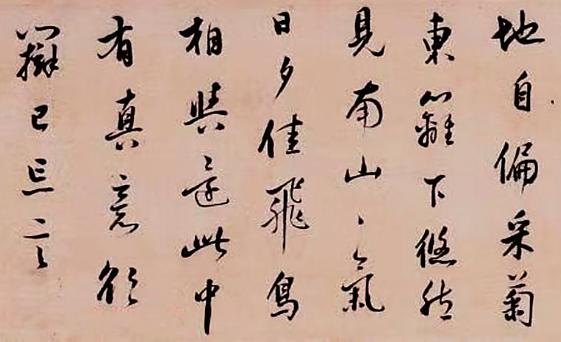 地自偏采菊
東籬下悠然
見南山〻氣
日夕佳飛鳥
相與還此中
有真意欲
辯已忘言